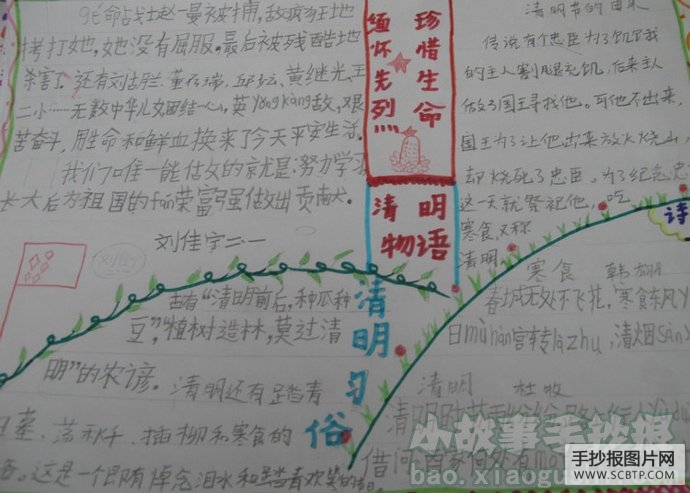 命战士赵一曼被捕,敌疯狂地
拷打她,她没有屈服。最后被残酷地
杀害了。还有刘古兰、董存瑞、邱少云、黄继光、王
二小……无数中华儿女团结一心,英yǒngkàng敌,艰
苦奋斗,用生命和鲜血换来了今天平安生活。
我们唯一能做的就是:努力学习
长大后为祖国的fán荣富强做出贡献。
刘佳宇二一
珍惜生命
缅怀先烈
清明
物语
清明节的由来
传说有个忠臣为了饥饿
的主人割腿充饥,后来主人
做了国王寻找他。可他不出来,
国王为了让他出来放火烧山,
却烧死了忠臣。为了纪念忠
这一天就祭祀他,吃
寒食,又称
清明
诗
清明习俗
古有“清明前后,种瓜种
豆”,“植树造林,莫过清
明”的农谚。清明还有踏青
墓、荡秋千、插柳和寒食的
俗。这是一个即有悼念泪水和踏青欢笑的节日
寒食 韩翃
春城无处不飞花,寒食东风
日mù hàn宫转là zhú,清烟sàn
清明 杜牧
清明时节
借问酒家何处有mù
小故事手抄报
bao.xiaogu
手抄报图片网
WWW.SCBTP.COM